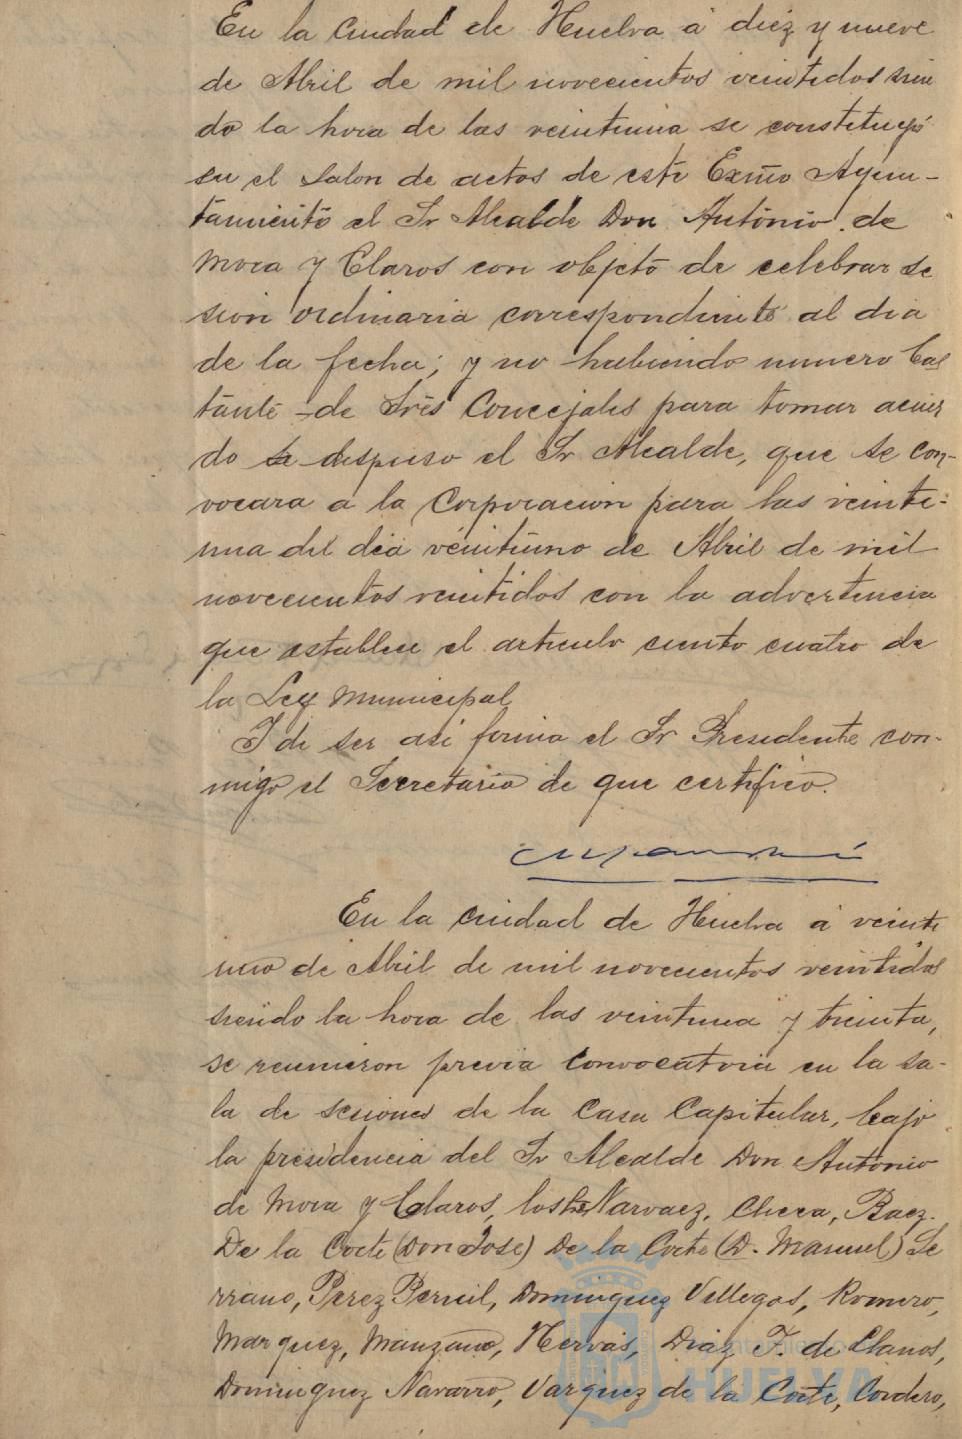 En la Ciudad de Huelva á diez y nueve
de Abril de mil novecientos veintidos sien
do la hora de las veintiuna se constituyó
en el Salon de actos de este Exmo Ayun-
tamiento el Sr Alcalde Don Antonio de
Mora y Claros con objeto de celebrar se
sion ordinaria correspondiente al dia
de la fecha; y no habiendo numero bas
tante de Sres Concejales para tomar acuer
do se dispuso el Sr Alcalde, que se con-
vocara a la Corporacion para las veinti-
una del dia veintiuno de Abril de mil
novecientos veintidos con la advertencia
que establece el articulo ciento cuatro de
la Ley Municipal
I de ser asi firma el Sr Presidente con-
migo el Secretario de que certifico.
En la ciudad de Huelva á veinti
uno de Abril de mil novecientos veintidos
siendo la hora de las veintiuna y treinta,
se reunieron previa convocatoria en la sa-
la de sesiones de la Casa Capitular, bajo
la presidencia del Sr Alcalde Don Antonio
de Mora y Claros, los Sres Narvaez, Checa, Baez.
De la Corte (Don José) De la Corte (D. Manuel) Se
rrano, Perez Pernil, Dominguez Villegas, Romero,
Marquez, Manzano, Hervás, Diaz F. de Llanos,
Dominguez Navarro, Vazquez de la Corte, Cordero,
HUELVA